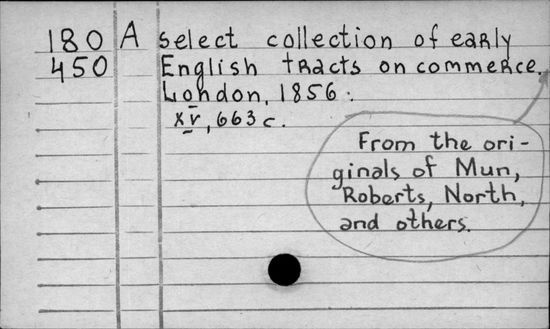 180 A select collection of early
450 English tracts on commerce.
London, 1856.
XV, 663 c.
From the ori-
ginals of Mun,
Roberts, North,
and others.